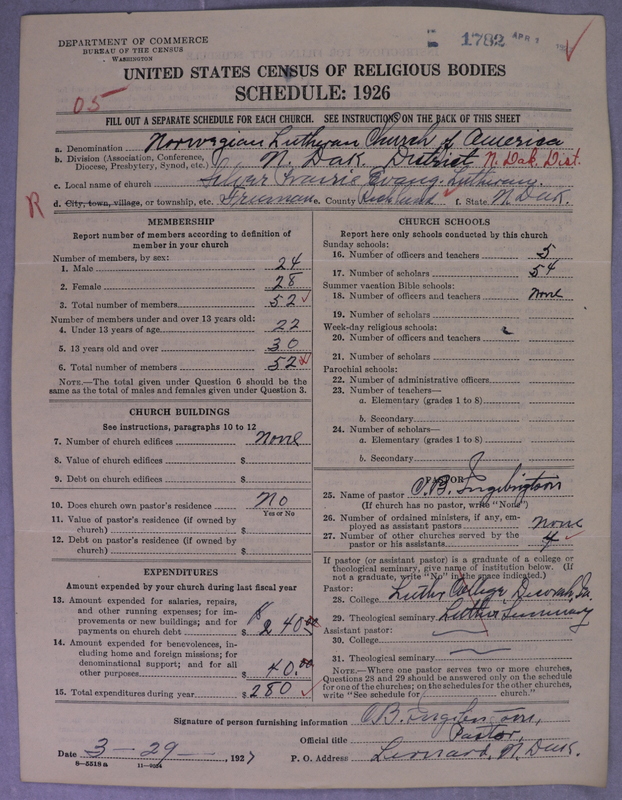 DEPARTMENT OF COMMERCE
BUREAU OF THE CENSUS
WASHINGTON
1782 APR
UNITED STATES CENSUS OF RELIGIOUS BODIES
SCHEDULE: 1926
05
FILL OUT A SEPARATE SCHEDULE FOR EACH CHURCH. SEE INSTRUCTIONS ON THE BACK OF THIS SHEET
a. Denomination Norwegian Lutheran Church of America
b. Division (Association, Conference, Diocese, Presbytery, Synod, etc.) N. Dak. District N. Dak. Dist.
c. Local name of church Prairie Evang. Lutheran
R
d. City, town, village, or township, etc. Freeman e. County Richland f. State N. Dak.
MEMBERSHIP
Report number of members according to definition of
member in your church
Number of members, by sex:
1. Male 24
2. Female 28
3. Total number of members 52
Number of members under and over 13 years old:
4. Under 13 years of age 22
5. 13 years old and over 30
6. Total number of members 52
NOTE.—The total given under Question 6 should be the
same as the total of males and females given under Question 3.
CHURCH BUILDINGS
See instructions, paragraphs 10 to 12
7. Number of church edifices None
8. Value of church edifices $
9. Debt on church edifices $
10. Does church own pastor's residence No
Yes or No
11. Value of pastor's residence (if owned by
church) $
12. Debt on pastor's residence (if owned by
church) $
EXPENDITURES
Amount expended by your church during last fiscal year
13. Amount expended for salaries, repairs,
and other running expenses; for im-
provements or new buildings; and for
payments on church debt $ 240.00
14. Amount expended for benevolences, in-
cluding home and foreign missions; for
denominational support; and for all
other purposes $ 40.00
15. Total expenditures during year $ 280
CHURCH SCHOOLS
Report here only schools conducted by this church
Sunday schools:
16. Number of officers and teachers 5
17. Number of scholars 54
Summer vacation Bible schools:
18. Number of officers and teachers None
19. Number of scholars
Week-day religious schools:
20. Number of officers and teachers
21. Number of scholars
Parochial schools:
22. Number of administrative officers
23. Number of teachers—
a. Elementary (grades 1 to 8)
b. Secondary
24. Number of scholars—
a. Elementary (grades 1 to 8)
b. Secondary
PASTOR
25. Name of pastor O.B. Ingebrigtson
(If church has no pastor, write "None")
26. Number of ordained ministers, if any, em-
ployed as assistant pastors None
27. Number of other churches served by the
pastor or his assistants 4
If pastor (or assistant pastor) is a graduate of a college or
theological seminary, give name of institution below. (If
not a graduate, write "No" in the space indicated.)
Pastor:
28. College Luther College Decorah, Ia.
29. Theological seminary Luther Seminary
Assistant pastor:
30. College
31. Theological seminary
NOTE.—Where one pastor serves two or more churches,
Questions 28 and 29 should be answered only on the schedule
for one of the churches; on the schedules for the other churches,
write "See schedule for church."
Signature of person furnishing information
Official title Pastor,
Date 3-29-, 1927 P. O. Address Leonard, N. Dak.
8—5518a 11—9034